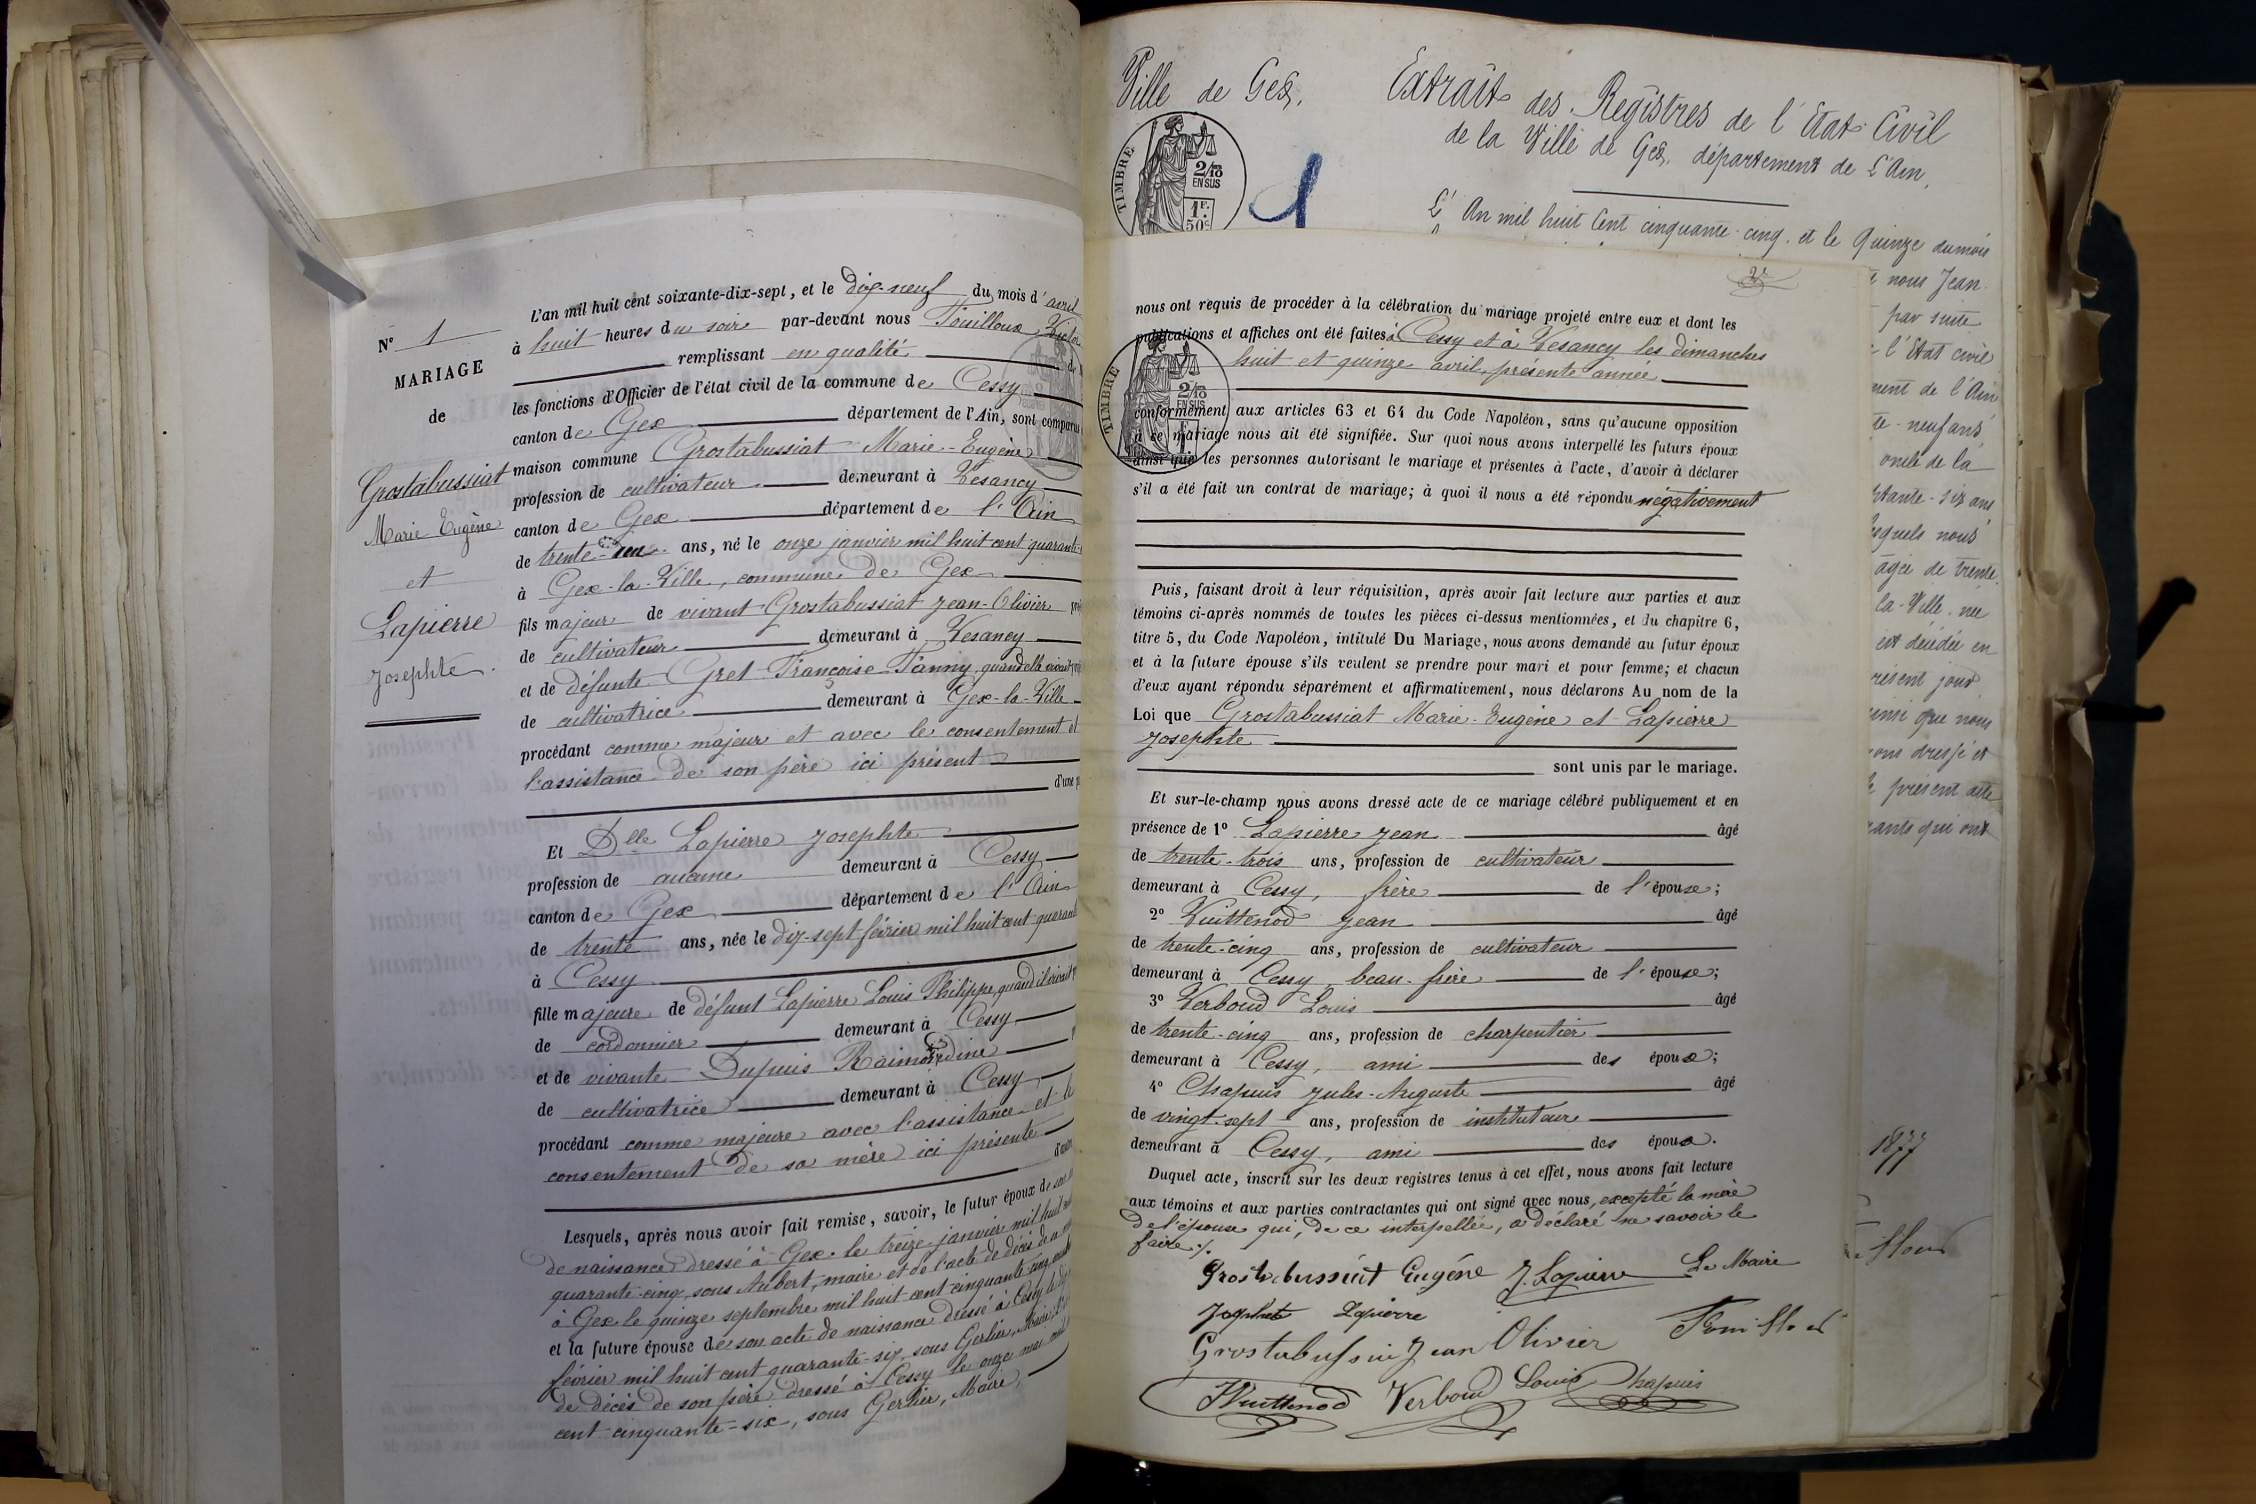 N° 1
MARIAGE
de
Grostabussiat
Marie Eugène
et
Lapierre
Josephte.
L'an mil huit cent soixante-dix-sept, et le dix-neuf du mois d'avril
à huit heures du soir par-devant nous Fouilloux Victor
remplissant en qualité
les fonctions d'Officier de l'état civil de la commune de Cessy
canton de Gex département de l'Ain, sont comparus
maison commune Grostabussiat Marie-Eugène
profession de cultivateur demeurant à Vesancy
canton de Gex département de l'Ain
de trente ans, né le onze janvier mil huit cent quarante
à Gex-la-Ville, commune de Gex
fils majeur de vivant Grostabussiat Jean-Olivier
de cultivateur demeurant à Vesancy
et de défunte Gret Françoise Fanny, quand elle vivait
de cultivatrice demeurant à Gex-la-Ville
procédant comme majeur et avec le consentement et
l'assistance de son père ici présent
d'une
Et Dlle Lapierre Josephte
profession de aucune demeurant à Cessy
canton de Gex département de l'Ain
de trente ans, née le dix-sept février mil huit cent quarante
à Cessy
fille majeure de défunt Lapierre Louis Philippe, quand il vivait
de cordonnier demeurant à Cessy
et de vivante Dupuis
de cultivatrice demeurant à Cessy
procédant comme majeure avec l'assistance et le
consentement de sa mère ici présente
Lesquels, après nous avoir fait remise, savoir, le futur époux de son
de naissance dressé à Gex le treize janvier mil huit
quarante-cinq, sous Aubert, maire et de l'acte de décès de
à Gex le quinze septembre mil huit cent cinquante-cinq
et la future épouse de son acte de naissance dressé à Cessy le
février mil huit cent quarante-six, sous Gerlier, Maire
de décès de son père dressé à Cessy le onze mai
cent cinquante-six, sous Gerlier, Maire,
Ville de Gex.
Extrait des Registres de l'Etat Civil
de la Ville de Gex, département de L'Ain,
TIMBRE
2/10
EN SUS
1F.
50c
L'An mil huit Cent cinquante-cinq et le Quinze du mois
nous Jean
par suite
l'Etat civil
de l'Ain
neuf ans
oncle de la
six ans
nous
âgée de trente
la-Ville née
est décédée en
jour
que nous
dressé et
présent acte
qui ont
1877
2e
nous ont requis de procéder à la célébration du mariage projeté entre eux et dont les
publications et affiches ont été faites à Cessy et à Vesancy les dimanches
huit et quinze avril, présente année
TIMBRE
2/10
EN SUS
conformément aux articles 63 et 64 du Code Napoléon, sans qu'aucune opposition
à se mariage nous ait été signifiée. Sur quoi nous avons interpellé les futurs époux
ainsi que les personnes autorisant le mariage et présentes à l'acte, d'avoir à déclarer
s'il a été fait un contrat de mariage; à quoi il nous a été répondu négativement
Puis, faisant droit à leur réquisition, après avoir fait lecture aux parties et aux
témoins ci-après nommés de toutes les pièces ci-dessus mentionnées, et du chapitre 6,
titre 5, du Code Napoléon, intitulé Du Mariage, nous avons demandé au futur époux
et à la future épouse s'ils veulent se prendre pour mari et pour femme; et chacun
d'eux ayant répondu séparément et affirmativement, nous déclarons Au nom de la
Loi que Grostabussiat Marie-Eugène et Lapierre
Josephte
sont unis par le mariage.
Et sur-le-champ nous avons dressé acte de ce mariage célébré publiquement et en
présence de 1° Lapierre Jean âgé
de trente-trois ans, profession de cultivateur
demeurant à Cessy, frère de l'épouse;
2° Vuittenod Jean âgé
de trente-cinq ans, profession de cultivateur
demeurant à Cessy, beau-frère de l'épouse;
3° Verboud Louis âgé
de trente-cinq ans, profession de charpentier
demeurant à Cessy, ami des époux;
4° Chapuis Jules-Auguste âgé
de vingt-sept ans, profession de instituteur
demeurant à Cessy, ami des époux.
Duquel acte, inscrit sur les deux registres tenus à cet effet, nous avons fait lecture
aux témoins et aux parties contractantes qui ont signé avec nous, excepté la mère
de l'épouse qui, de ce interpellée, a déclaré ne savoir le
faire ./.
Grostabussiat Eugène J. Lapierre Le Maire
Josephte Lapierre
Grostabussiat Jean Olivier Fouilloux
JVuittenod Verboud Louis Chapuis